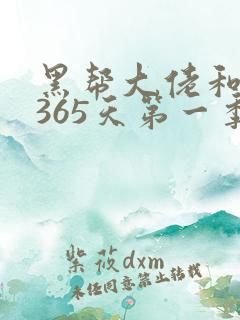 黑帮大佬和
365天第一季
紫筱dxm
未经同意禁止转载